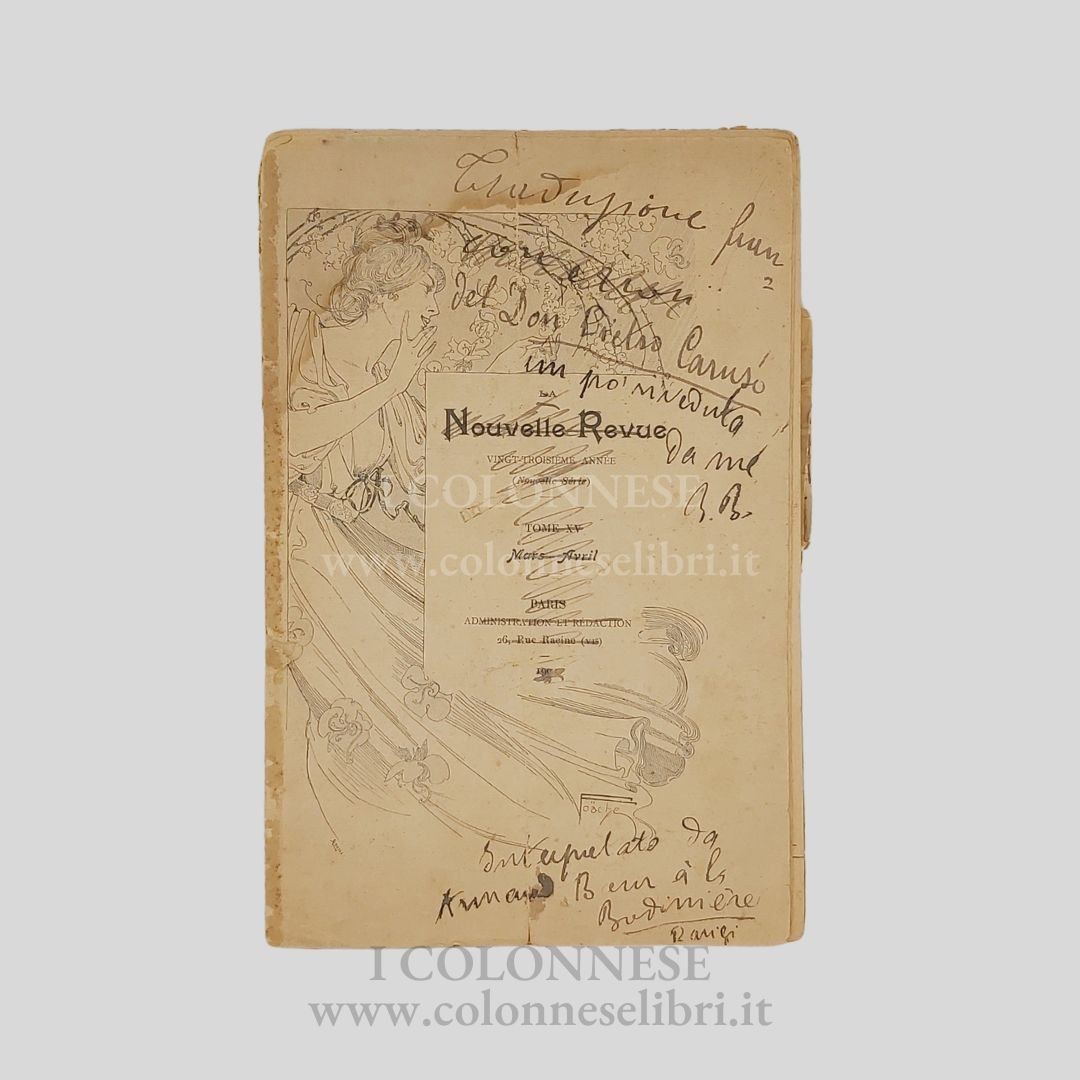 Traduzione fran
del Don Pietro Caruso
un po' riveduta
da me
B. B.
LA
Nouvelle Revue
VINGT-TROISIÈME ANNÉE
(Nouvelle Série)
TOME XV
Mars-Avril
PARIS
ADMINISTRATION ET RÉDACTION
26, Rue Racine (VIe)
I COLONNESE
www.colonneselibri.it
Interpretato da
Armand Bour à la
Bodinière
Parigi
I COLONNESE
www.colonneselibri.it